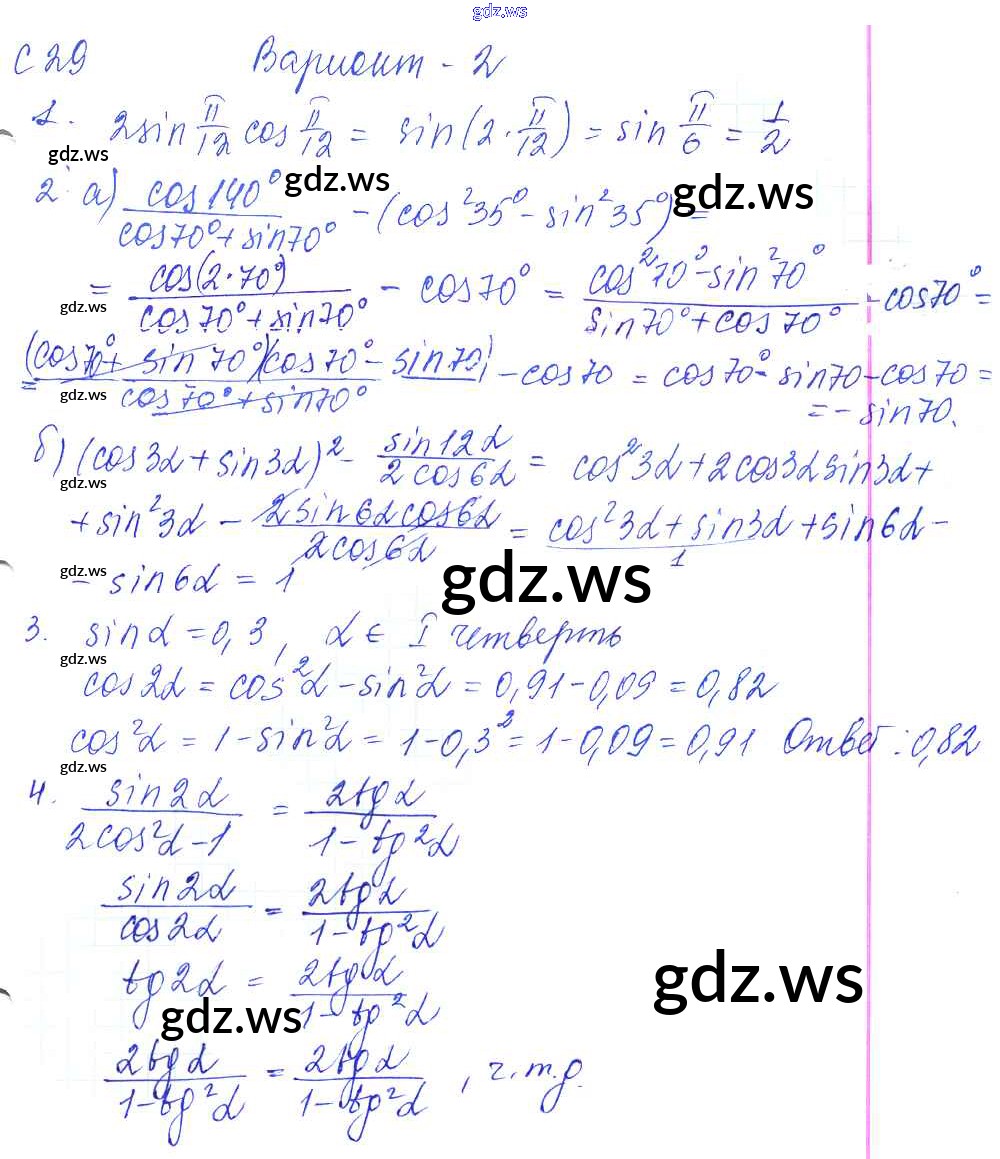 gdz.ws
С 29 Вариант - 2
1. 2sin π/12 cos π/12 = sin(2·π/12) = sin π/6 = 1/2
gdz.ws gdz.ws gdz.ws
2. а) cos140°/(cos70°+sin70°) - (cos²35° - sin²35°) =
= cos(2·70°)/(cos70°+sin70°) - cos70° = (cos²70°-sin²70°)/(sin70°+cos70°) - cos70° =
gdz.ws
= (cos70°+sin70°)(cos70°-sin70)/(cos70°+sin70°) - cos70 = cos70°- sin70-cos70 =
gdz.ws
= - sin70.
б) (cos3α+sin3α)² - sin12α/(2cos6α) = cos²3α+2cos3αsin3α+
gdz.ws
+ sin²3α - 2sin6αcos6α/(2cos6α) = cos²3α+sin3α+sin6α-
1
gdz.ws gdz.ws
- sin6α = 1
3. sinα = 0,3, α ∈ I четверть
gdz.ws
cos2α = cos²α - sin²α = 0,91-0,09 = 0,82
cos²α = 1-sin²α = 1-0,3² = 1-0,09 = 0,91 Ответ: 0,82
gdz.ws
4. sin2α/(2cos²α-1) = 2tgα/(1-tg²α)
sin2α/cos2α = 2tgα/(1-tg²α)
tg2α = 2tgα/(1-tg²α)
gdz.ws gdz.ws
2tgα/(1-tg²α) = 2tgα/(1-tg²α), ч.т.д.